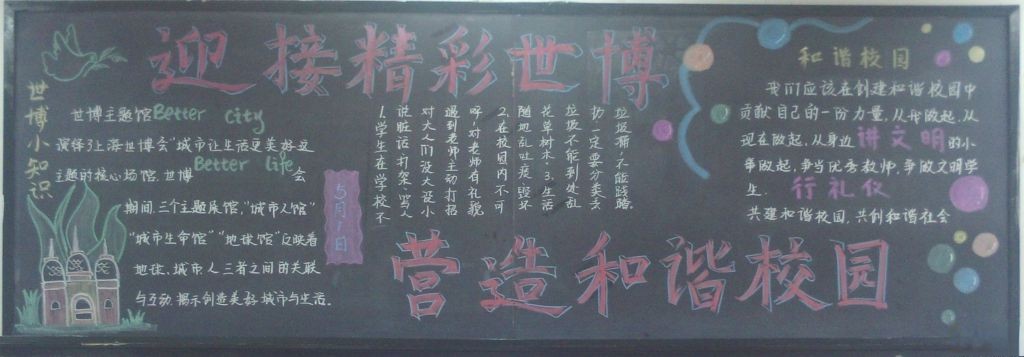 迎接精彩世博
世博小知识
世博主题馆Better City
演绎了上海世博会"城市让生活更美好"这
主题的核心场馆.世博Better life会
期间,三个主题展馆,"城市人馆"
"城市生命馆""地球馆"反映着
地球.城市.人三者之间的关联
与互动.揭示创造美好城市与生活。
5月1日
1.学生在学校不
说脏话.打架.骂人
对大人们没大没小
遇到老师主动打招
呼,对老师有礼貌
2.在校园内不可
随地乱吐痰.毁坏
花草树木.3.生活
垃圾不能到处乱
扔一定要分类丢
垃圾桶,不能践踏.
和谐校园
我们应该在创建和谐校园中
贡献自己的一份力量,从我做起.从
现在做起,从身边讲文明的小
事做起,争当优秀教师,争做文明学
生. 行礼仪
共建和谐校园,共创和谐社会
营造和谐校园